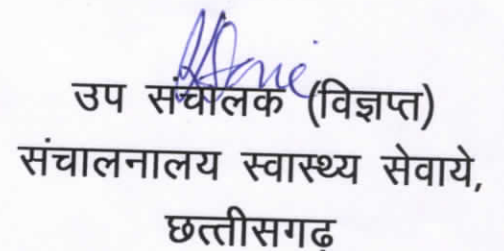 उप संचालक (विज्ञप्त)
संचालनालय स्वास्थ्य सेवाये,
छत्तीसगढ़